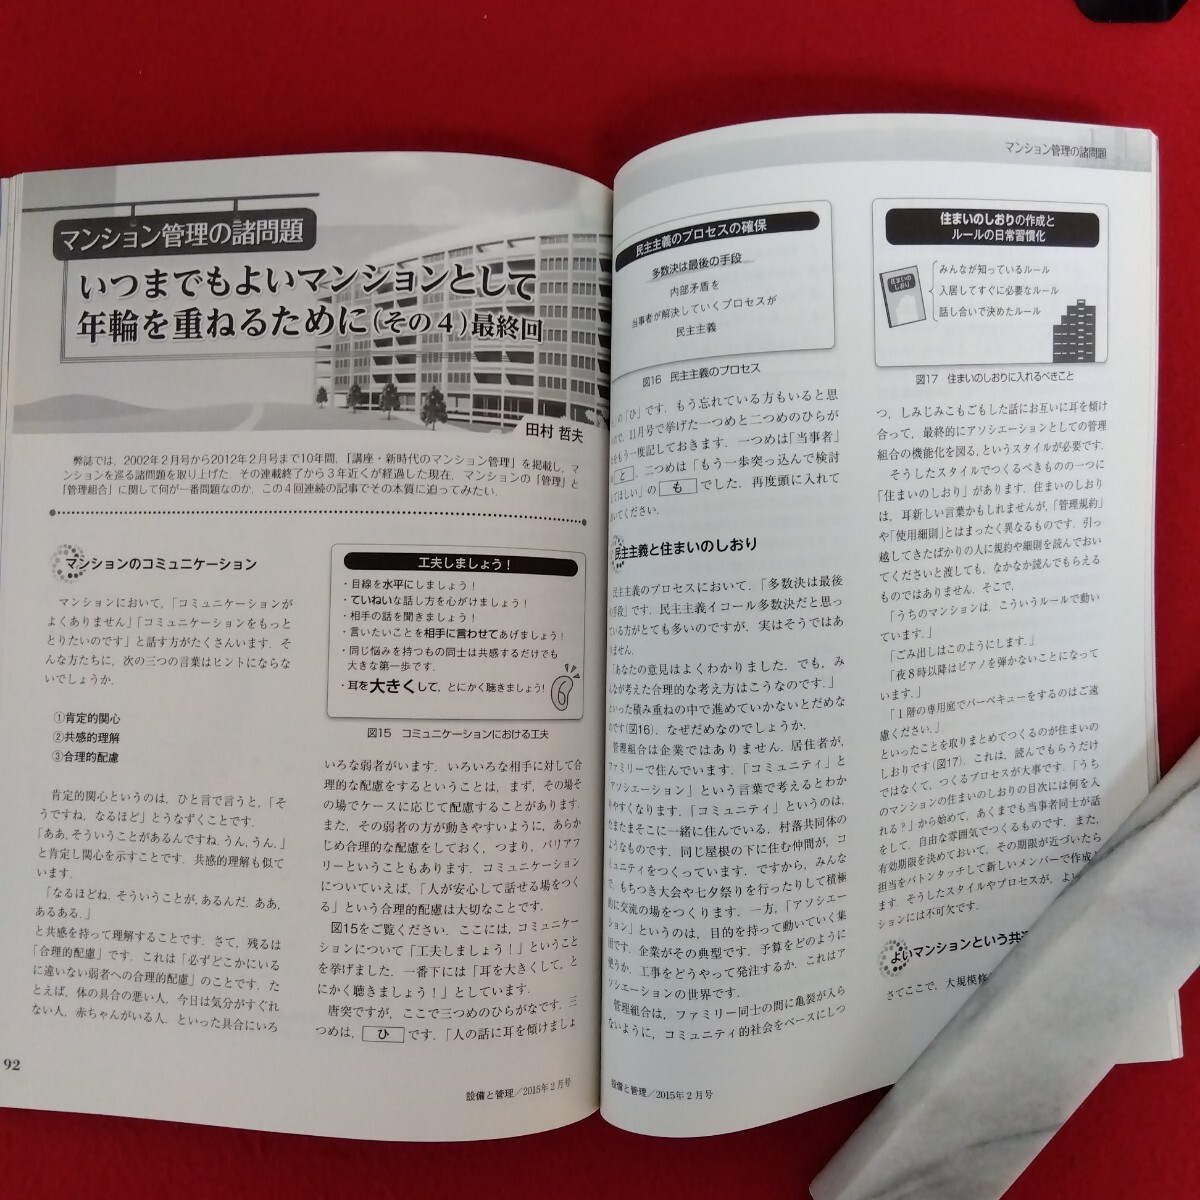 マンション管理の諸問題
いつまでもよいマンションとして
年輪を重ねるために(その4)最終回
田村 哲夫
弊誌では,2002年2月号から2012年2月号まで10年間,「講座・新時代のマンション管理」を掲載し,マ
ンションを巡る諸問題を取り上げた.その連載終了から3年近くが経過した現在,マンションの「管理」と
「管理組合」に関して何が一番問題なのか,この4回連続の記事でその本質に迫ってみたい.
マンションのコミュニケーション
マンションにおいて,「コミュニケーションが
よくありません」「コミュニケーションをもっと
とりたいのです」と話す方がたくさんいます.そ
んな方たちに,次の三つの言葉はヒントにならな
いでしょうか.
①肯定的関心
②共感的理解
③合理的配慮
肯定的関心というのは,ひと言で言うと,「そ
うですね,なるほど」とうなずくことです.
「ああ,そういうことがあるんですね,うん,うん.」
と肯定し関心を示すことです.共感的理解も似て
います.
「なるほどね,そういうことが,あるんだ.ああ,
あるある.」
と共感を持って理解することです.さて,残るは
「合理的配慮」です.これは「必ずどこかにいる
に違いない弱者への合理的配慮」のことです.た
とえば,体の具合の悪い人,今日は気分がすぐれ
ない人,赤ちゃんがいる人,といった具合にいろ
工夫しましょう!
・目線を水平にしましょう!
・ていねいな話し方を心がけましょう!
・相手の話を聞きましょう!
・言いたいことを相手に言わせてあげましょう!
・同じ悩みを持つもの同士は共感するだけでも
大きな第一歩です.
・耳を大きくして,とにかく聴きましょう!
図15 コミュニケーションにおける工夫
いろな弱者がいます.いろいろな相手に対して合
理的な配慮をするということは,まず,その場そ
の場でケースに応じて配慮することがあります.
また,その弱者の方が動きやすいように,あらか
じめ合理的な配慮をしておく,つまり,バリアフ
リーということもあります.コミュニケーション
についていえば,「人が安心して話せる場をつく
る」という合理的配慮は大切なことです.
図15をご覧ください.ここには,コミュニケー
ションについて「工夫しましょう!」ということ
を挙げました.一番下には「耳を大きくして,と
にかく聴きましょう!」としています.
唐突ですが,ここで三つめのひらがなです.三
つめは, ひ です.「人の話に耳を傾けましょ
92
設備と管理/2015年2月号
マンション管理の諸問題
民主主義のプロセスの確保
多数決は最後の手段
内部矛盾を
当事者が解決していくプロセスが
民主主義
図16 民主主義のプロセス
の「ひ」です.もう忘れている方もいると思
で,11月号で挙げた一つめと二つめのひらが
をもう一度記しておきます.一つめは「当事者」
と ,二つめは「もう一歩突っ込んで検討
してほしい」の も でした.再度頭に入れて
いてください.
民主主義と住まいのしおり
民主主義のプロセスにおいて,「多数決は最後
の手段」です.民主主義イコール多数決だと思っ
ている方がとても多いのですが,実はそうではあ
りません.
「あなたの意見はよくわかりました.でも,み
んなが考えた合理的な考え方はこうなのです.」
といった積み重ねの中で進めていかないとだめな
のです(図16).なぜだめなのでしょうか.
管理組合は企業ではありません.居住者が,
ファミリーで住んでいます.「コミュニティ」と
「アソシエーション」という言葉で考えるとわか
りやすくなります.「コミュニティ」というのは,
たまたまそこに一緒に住んでいる,村落共同体の
ようなものです.同じ屋根の下に住む仲間が,コ
ミュニティをつくっています.ですから,みんな
で,もちつき大会や七夕祭りを行ったりして積極
的に交流の場をつくります.一方,「アソシエー
ション」というのは,目的を持って動いていく集
団です.企業がその典型です.予算をどのように
使うか,工事をどうやって発注するか.これはア
ソシエーションの世界です.
管理組合は,ファミリー同士の間に亀裂が入ら
ないように,コミュニティ的社会をベースにしつ
設備と管理/2015年2月号
住まいのしおりの作成と
ルールの日常習慣化
住まいの
しおり
みんなが知っているルール
入居してすぐに必要なルール
話し合いで決めたルール
図17 住まいのしおりに入れるべきこと
つ,しみじみこもごもした話にお互いに耳を傾け
合って,最終的にアソシエーションとしての管理
組合の機能化を図る,というスタイルが必要です.
そうしたスタイルでつくるべきものの一つに
「住まいのしおり」があります.住まいのしおり
は,耳新しい言葉かもしれませんが,「管理規約」
や「使用細則」とはまったく異なるものです.引っ
越してきたばかりの人に規約や細則を読んでおい
てくださいと渡しても,なかなか読んでもらえる
ものではありません.そこで,
「うちのマンションは,こういうルールで動い
ています.」
「ごみ出しはこのようにします.」
「夜8時以降はピアノを弾かないことになって
います.」
「1階の専用庭でバーベキューをするのはご遠
慮ください.」
といったことを取りまとめてつくるのが住まいの
しおりです(図17).これは,読んでもらうだけ
ではなくて,つくるプロセスが大事です.「うち
のマンションの住まいのしおりの目次には何を入
れる?」から始めて,あくまでも当事者同士が話
をして,自由な雰囲気でつくるものです.また,
有効期限を決めておいて,その期限が近づいたら
担当をバトンタッチして新しいメンバーで作成
ます.そうしたスタイルやプロセスが,よい
ションには不可欠です.
よいマンションという共
さてここで,大規模修